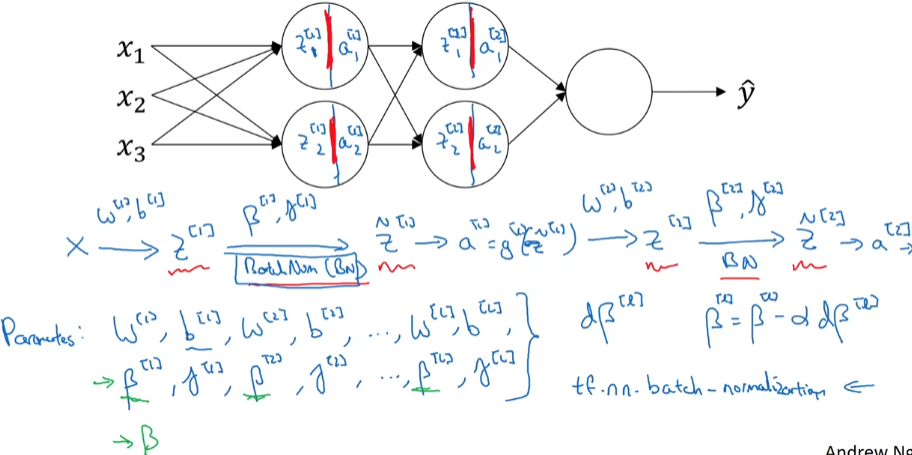 x₁
x₂
x₃
z₁^[1] a₁^[1]
z₂^[1] a₂^[1]
z₁^[2] a₁^[2]
z₂^[2] a₂^[2]
ŷ
X →(W^[1], b^[1]) z^[1] →(β^[1], γ^[1] Batch Norm (BN)) z̃^[1] → a^[1] = g^[1](z̃^[1]) →(W^[2], b^[2]) z^[2] →(β^[2], γ^[2] BN) z̃^[2] → a^[2] →
Parameters: W^[1], b^[1], W^[2], b^[2], ..., W^[L], b^[L],
→ β^[1], γ^[1], β^[2], γ^[2], ..., β^[L], γ^[L] }
→ β
dβ^[l] β^[l] = β^[l] - α dβ^[l]
tf.nn.batch-normalization ←
Andrew Ng